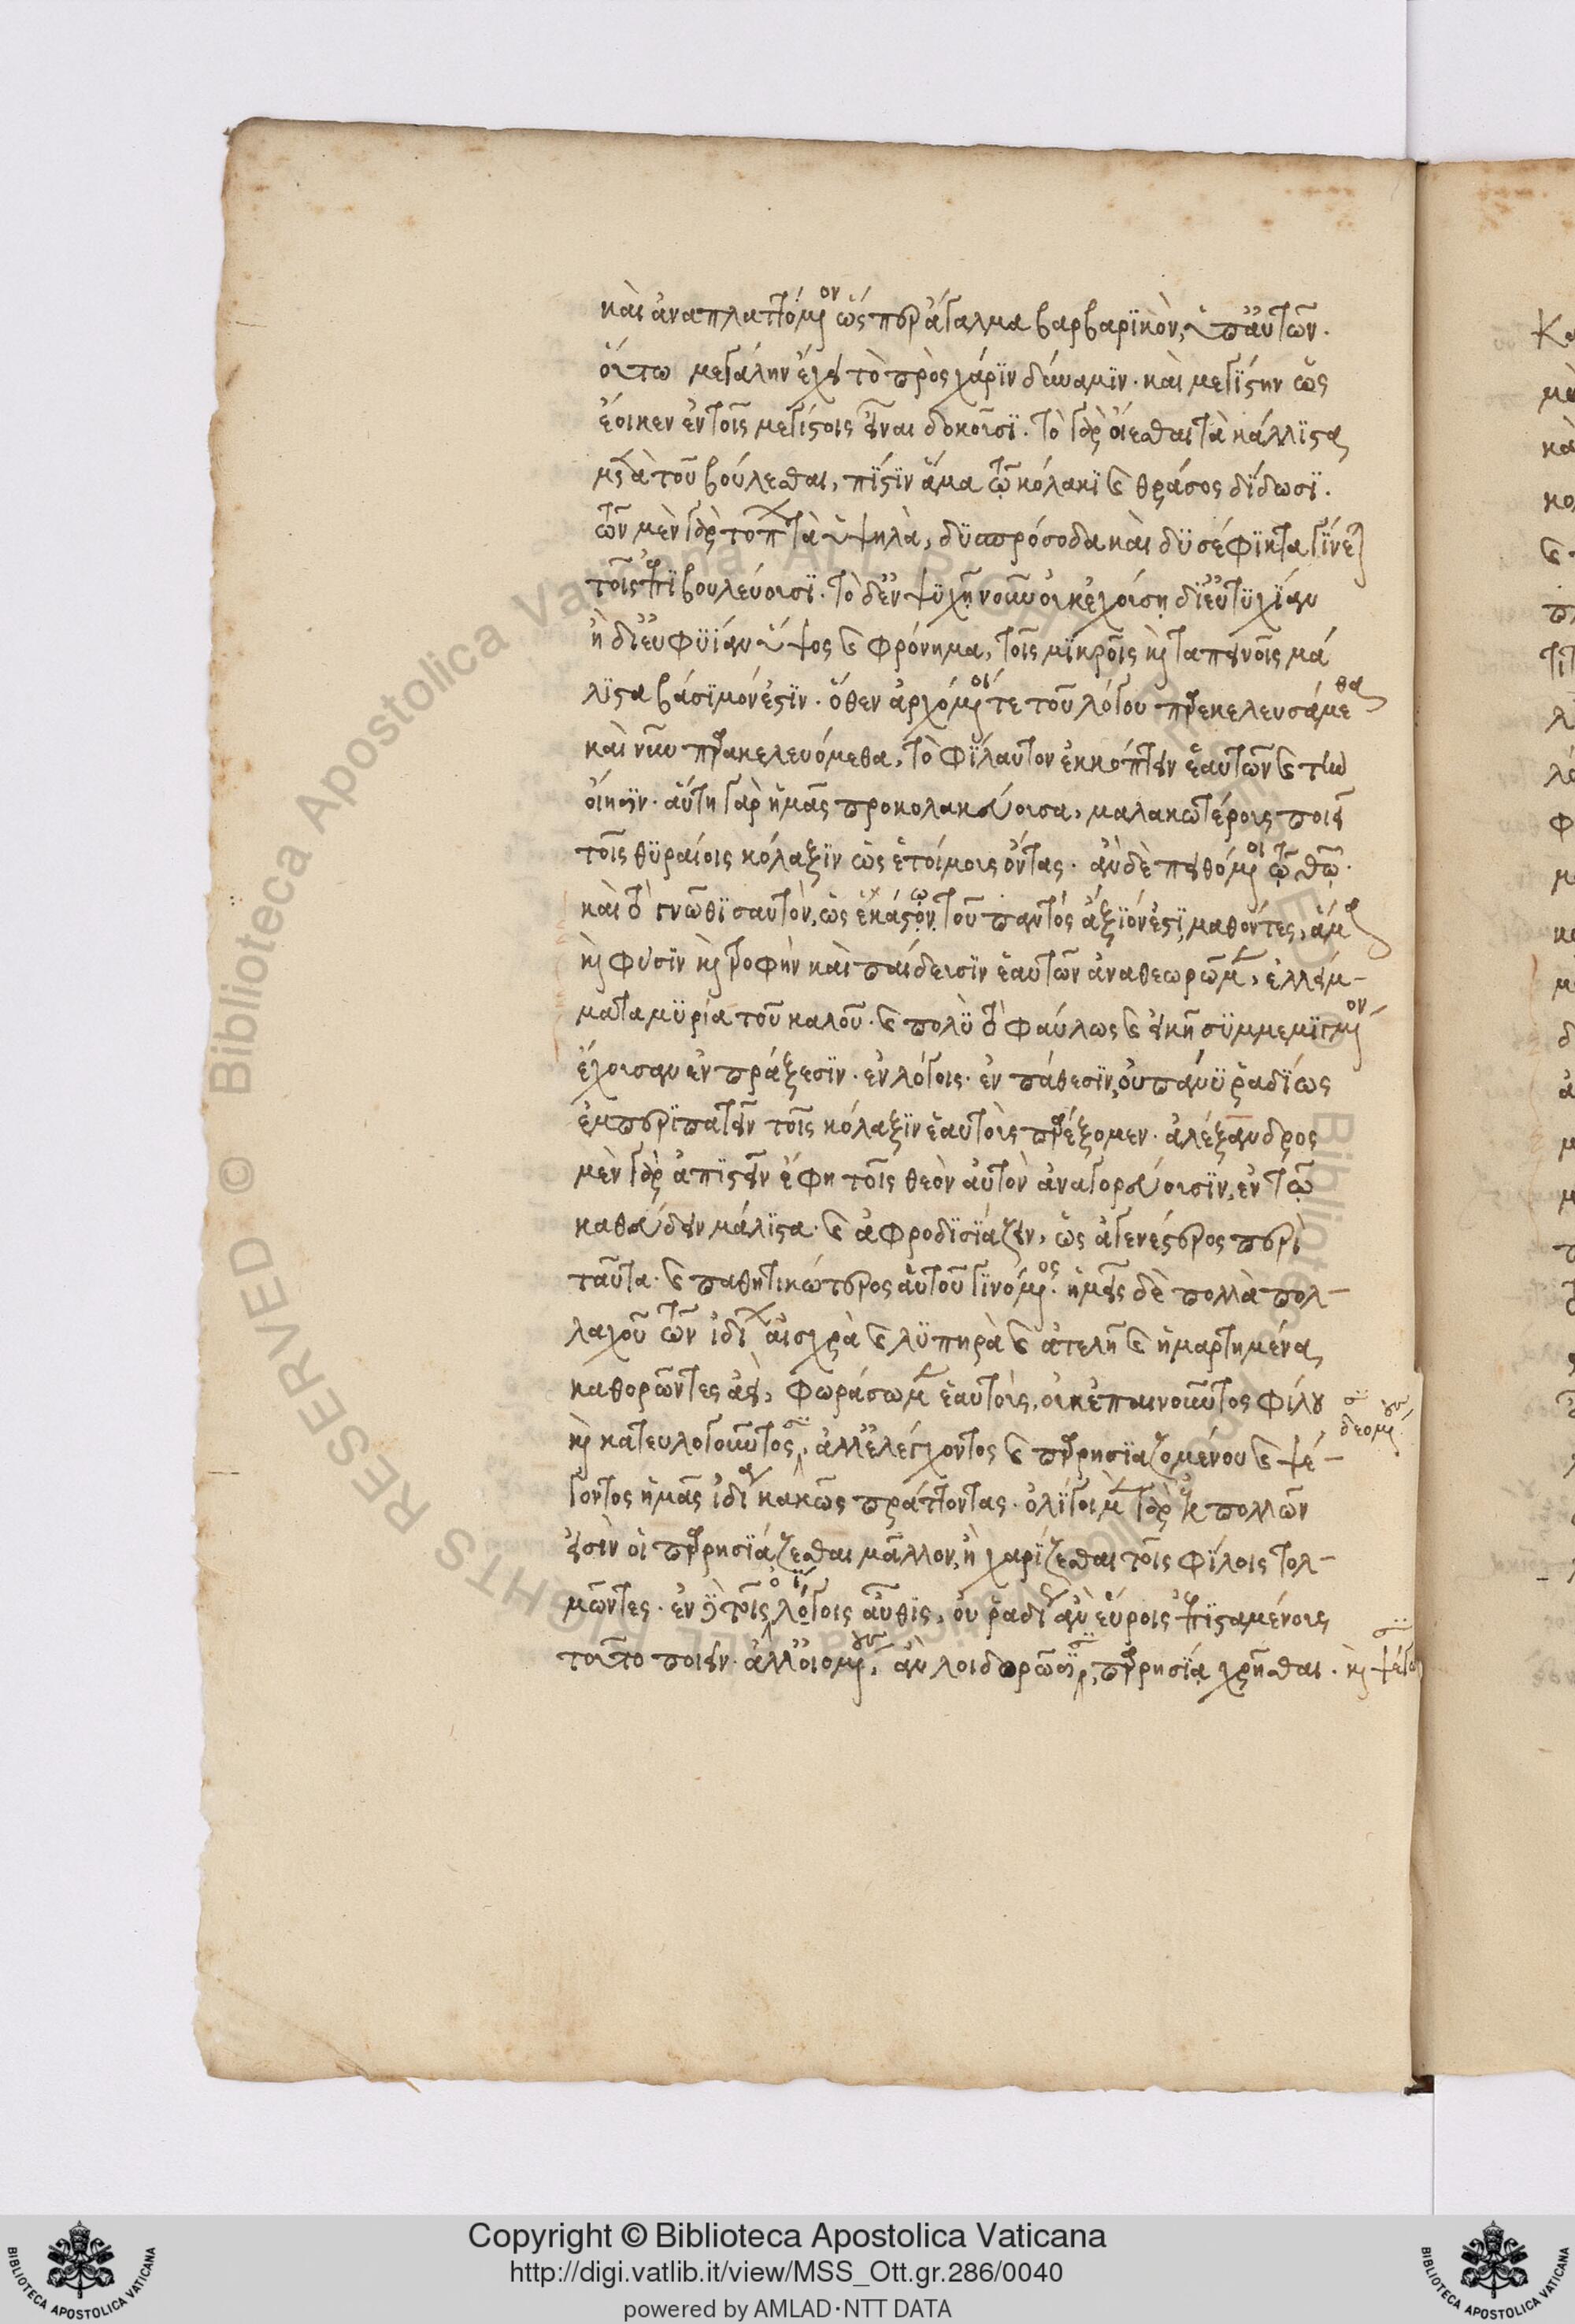 καὶ ἀναπλαττόμενον ὡς περ ἄγαλμα βαρβαρικὸν, ὑπ' αὐτῶν.
οὕτω μεγάλην ἔχει τὸ πρὸς χάριν δύναμιν. καὶ μεγίστην ὡς
ἔοικεν ἐν τοῖς μεγίστοις εἶναι δοκοῦσι. τὸ γὰρ οἴεσθαι τὰ κάλλιστα
μετὰ τοῦ βούλεσθαι, πίστιν ἅμα τῷ κόλακι καὶ θράσος δίδωσι.
τῶν μὲν γὰρ τόπων τὰ ὑψηλὰ, δυσπρόσοδα καὶ δυσέφικτα γίνεται
τοῖς ἐπιβουλεύουσι. τὸ δ' ἐν ψυχῇ νοῦν οὐκ ἐχούσῃ δι' εὐτυχίαν
ἢ δι' εὐφυΐαν ὕψος καὶ φρόνημα, τοῖς μικροῖς καὶ ταπεινοῖς μά
λιστα βάσιμόν ἐστιν. ὅθεν ἀρχόμενοί τε τοῦ λόγου παρεκελευσάμεθα
καὶ νῦν παρακελευόμεθα, τὸ φίλαυτον ἐκκόπτειν ἑαυτῶν καὶ τὴν
οἴησιν. αὕτη γὰρ ἡμᾶς προκολακεύουσα, μαλακωτέρους ποιεῖ
τοῖς θυραίοις κόλαξιν ὡς ἑτοίμους ὄντας. ἂν δὲ πειθόμενοι τῷ θεῷ.
καὶ τὸ γνῶθι σαυτὸν, ὡς ἑκάστῳ τοῦ παντός ἄξιόν ἐστι, μαθόντες, ἅμα
καὶ φύσιν καὶ τροφὴν καὶ παίδευσιν ἑαυτῶν ἀναθεωρῶμεν, ἐλλείμ-
ματα μυρία τοῦ καλοῦ. καὶ πολὺ τὸ φαύλως καὶ εἰκῆ συμμεμιγμένον
ἔχουσαν ἐν πράξεσιν. ἐν λόγοις. ἐν πάθεσιν, οὐ πάνυ ῥαδίως
ἐμπεριπατεῖν τοῖς κόλαξιν ἑαυτοὺς παρέξομεν. ἀλέξανδρος
μὲν γὰρ ἀπιστεῖν ἔφη τοῖς θεὸν αὐτὸν ἀναγορεύουσιν, ἐν τῷ
καθεύδειν μάλιστα. καὶ ἀφροδισιάζειν, ὡς ἀγενέστερος περὶ
ταῦτα. καὶ παθητικώτερος αὑτοῦ γινόμενος. ἡμεῖς δὲ πολλὰ πολ-
λαχοῦ τῶν ἰδίων αἰσχρὰ καὶ λυπηρὰ καὶ ἀτελῆ καὶ ἡμαρτημένα
καθορῶντες ἀεὶ, φωράσωμεν ἑαυτοὺς, οὐκ ἐπαινοῦντος φίλου
δεομένους
καὶ κατευλογοῦντος, ἀλλ' ἐλέγχοντος καὶ παρρησιαζομένου καὶ ψέ-
γοντος ἡμᾶς ἰδίᾳ κακῶς πράττοντας. ὀλίγοι μὲν γὰρ ἐκ πολλῶν
εἰσὶν οἱ παρρησιάζεσθαι μᾶλλον, ἢ χαρίζεσθαι τοῖς φίλοις τολ-
μῶντες. ἐν δὲ τοῖς ὀλίγοις αὖθις, οὐ ῥαδίως ἂν εὕροις ἐπισταμένους
τοῦτο ποιεῖν. ἀλλ' οἰομένους, ἂν λοιδορῶσι, παρρησίᾳ χρῆσθαι. καὶ ψέγωσι